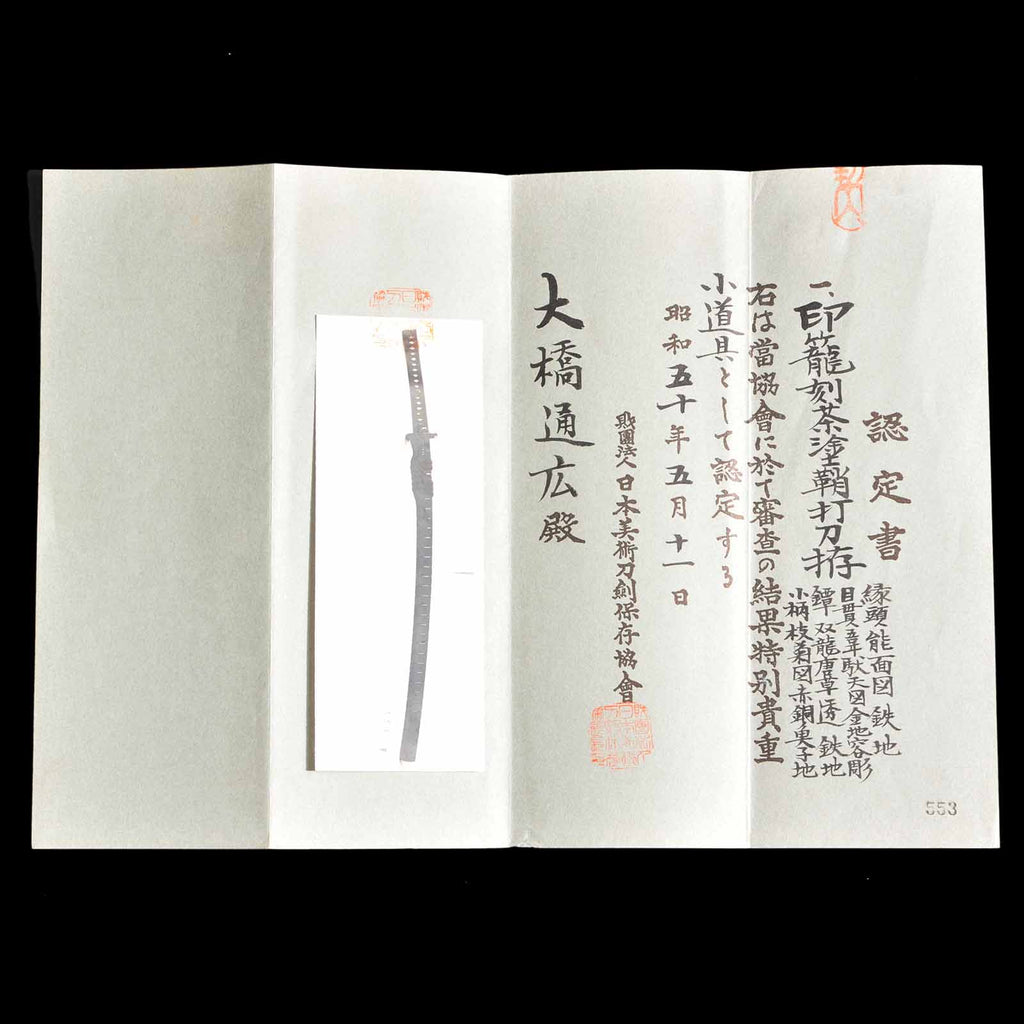 認定書
一、印籠刻茶塗鞘打刀拵
縁頭 能面図 鉄地
目貫 韋駄天図 金地容彫
鐔 双龍唐草透 鉄地
小柄 枝菊図 赤銅魚子地
右は當協會に於て審査の結果特別貴重
小道具として認定する
昭和五十年五月十一日
財團法人日本美術刀劍保存協會
大橋通広殿
553